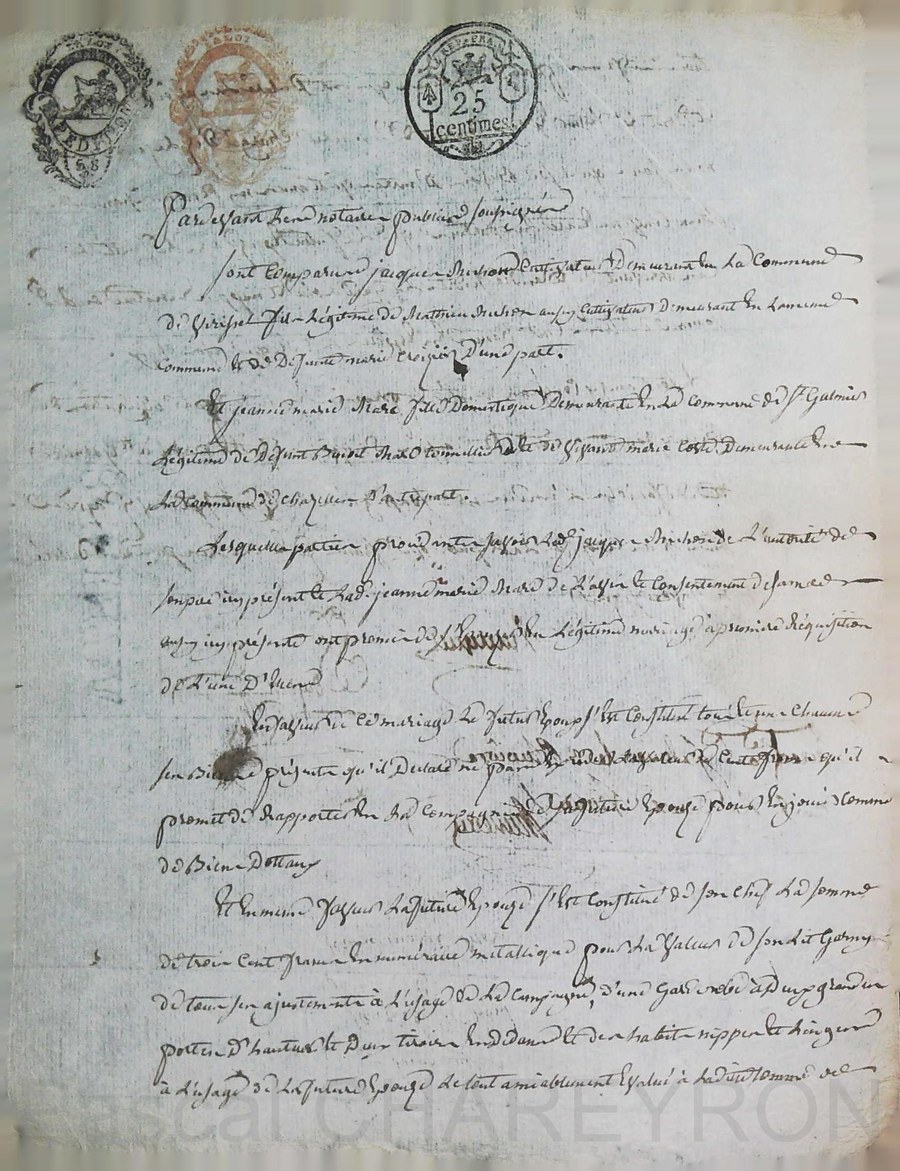 LA LOI
EXPEDITION
LA LOI
REP. FRA.
25
centimes
Pardevant Rene notaire public soussigné
sont comparus jacques Michon Cultivateur demeurant en La Commune
de Virigneux fils Légitime de Mathieu Michon aussy Cultivateur Demeurant en La meme
commune et de Defunte marie Croizier D'une part.
Et jeanne marie Mare fille Domestique Demeurante en La Commune de St Galmier
Légitime de Défunt Benoit Mare tonnellier et de Vivante marie Coste Demeurante en
La Commune de Chazelles D'autre part.
Lesquelles parties procedantes savoir Led. jacques Michon de L'autorité de
son père icy présent et Lad. jeanne marie Mare de L'avis et Consentement de sa mere
aussy icy présente ont promis de en Légitime mariage a premiere Réquisition
de L'une D'Icene
En faveur de ce mariage Le futur Epoux s'est Constitué tous et uns Chacuns
ses Biens présents qu'il Declare ne pas valeur de Cent francs qu'il
promet de Rapporter en La Compagnie de La future Epouse pour En jouir Comme
de Biens Dottaux
Et En meme faveur La future Epouse s'est Constitué de son Chef La somme
de trois Cent francs En numéraire métallique pour La Valeur de son Lit Garny
de tous ses ajustements à L'usage de La Campagne, d'une Garderobe à Deux grandes
portes D'hauteur et Deux tiroirs En dedans et des habits nippes et Linges
à L'usage de La future Epouse Le tout amiablement Evalué à Ladite somme de
ascal CHAREYRON